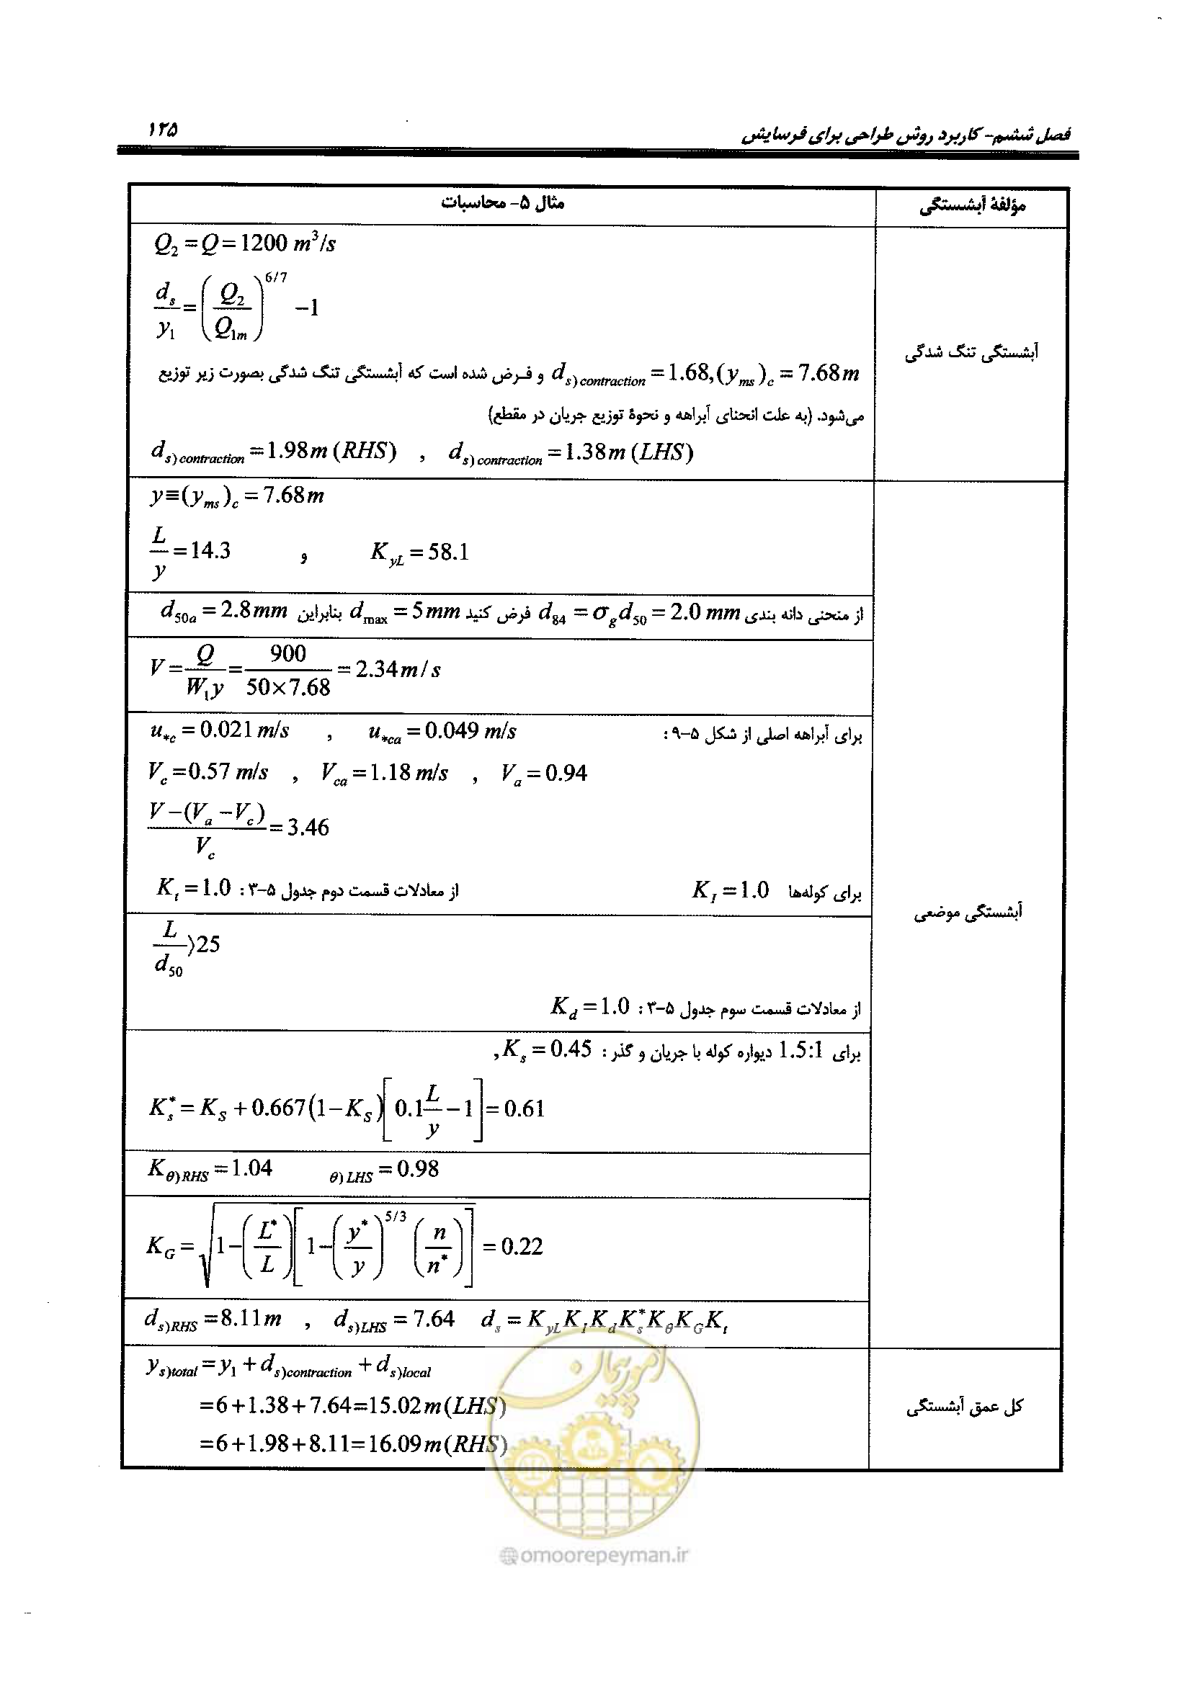 فصل ششم- کاربرد روش طراحی برای فرسایش ۱۲۵
مؤلفهٔ آبشستگی
مثال ۵- محاسبات
آبشستگی تنگ شدگی
Q₂ = Q = 1200 m³/s
d_s/y₁ = (Q₂/Q_{1m})^{6/7} −1
d_{s)contraction} = 1.68, (y_{ms})_c = 7.68m و فرض شده است که آبشستگی تنگ شدگی بصورت زیر توزیع
می‌شود. (به علت انحنای آبراهه و نحوهٔ توزیع جریان در مقطع)
d_{s)contraction} = 1.98m (RHS) , d_{s)contraction} = 1.38m (LHS)
آبشستگی موضعی
y ≡ (y_{ms})_c = 7.68m
L/y = 14.3 و K_{yL} = 58.1
از منحنی دانه بندی d₈₄ = σ_g d₅₀ = 2.0 mm فرض کنید d_{max} = 5mm بنابراین d_{50a} = 2.8mm
V = Q/(W₁y) = 900/(50×7.68) = 2.34 m/s
برای آبراهه اصلی از شکل ۵-۹: u_{*c} = 0.021 m/s , u_{*ca} = 0.049 m/s
V_c = 0.57 m/s , V_{ca} = 1.18 m/s , V_a = 0.94
(V −(V_a −V_c))/V_c = 3.46
برای کوله‌ها K_I = 1.0 از معادلات قسمت دوم جدول ۵-۳: K_t = 1.0
L/d₅₀ ⟩25
از معادلات قسمت سوم جدول ۵-۳: K_d = 1.0
برای 1.5:1 دیواره کوله با جریان و گذر: K_s = 0.45,
K_s^* = K_S + 0.667(1−K_s)[0.1 L/y −1] = 0.61
K_{θ)RHS} = 1.04 _{θ)LHS} = 0.98
K_G = √(1−(L^*/L)[1−(y^*/y)^{5/3}(n/n^*)]) = 0.22
d_{s)RHS} = 8.11m , d_{s)LHS} = 7.64 d_s = K_{yL}K_I K_d K_s^* K_θ K_G K_t
کل عمق آبشستگی
y_{s)total} = y₁ + d_{s)contraction} + d_{s)local}
=6+1.38+7.64=15.02m(LHS)
=6+1.98+8.11=16.09m(RHS)
امور پیمان
@omoorepeyman.ir